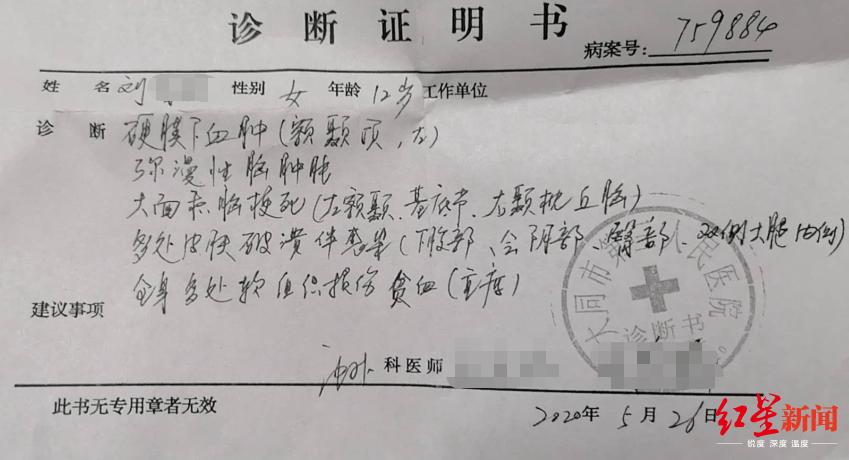 诊断证明书
病案号：759884
姓名 刘 性别 女 年龄 12岁 工作单位
诊断 硬膜下血肿（额颞顶，左）
弥漫性脑肿胀
大面积脑梗死（左额颞、基底节、右颞枕丘脑）
多处皮肤破溃伴感染（下腹部、会阴部、臀部、双侧大腿内侧）
全身多处软组织损伤 贫血（重度）
建议事项
科医师
此书无专用章者无效
2020年5月26日
大同市 人民医院
诊断书
红星新闻
锐度 深度 温度